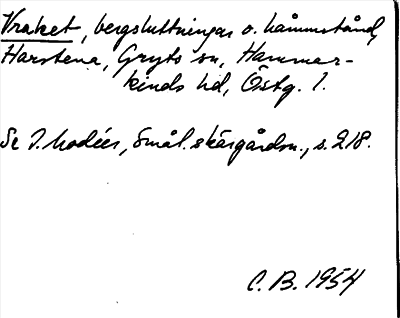 Vraket, bergsluttningar o.
Harstena, Gryts sn, Hammar-
kinds hd, Östg. l.
Se I. Modéer, Smål. skärgårdsn., s. 218.
C. B. 1954